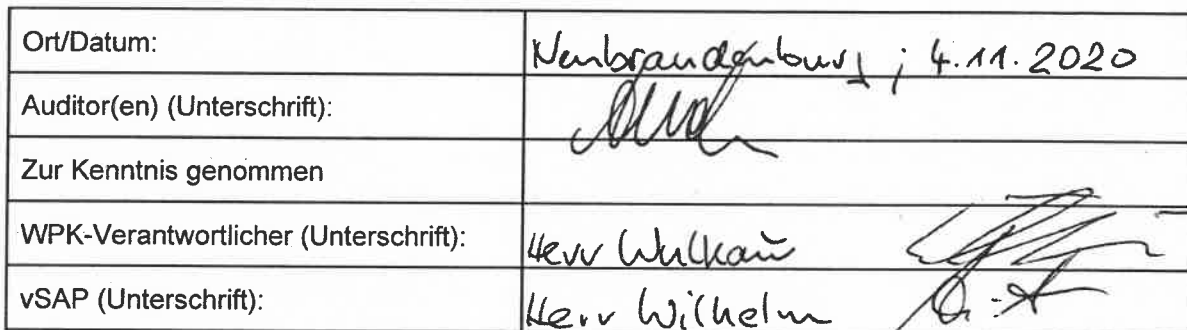 Ort/Datum: Neubrandenburg ; 4.11.2020
Auditor(en) (Unterschrift):
Zur Kenntnis genommen
WPK-Verantwortlicher (Unterschrift): Herr Wulkau
vSAP (Unterschrift): Herr Wilhelm